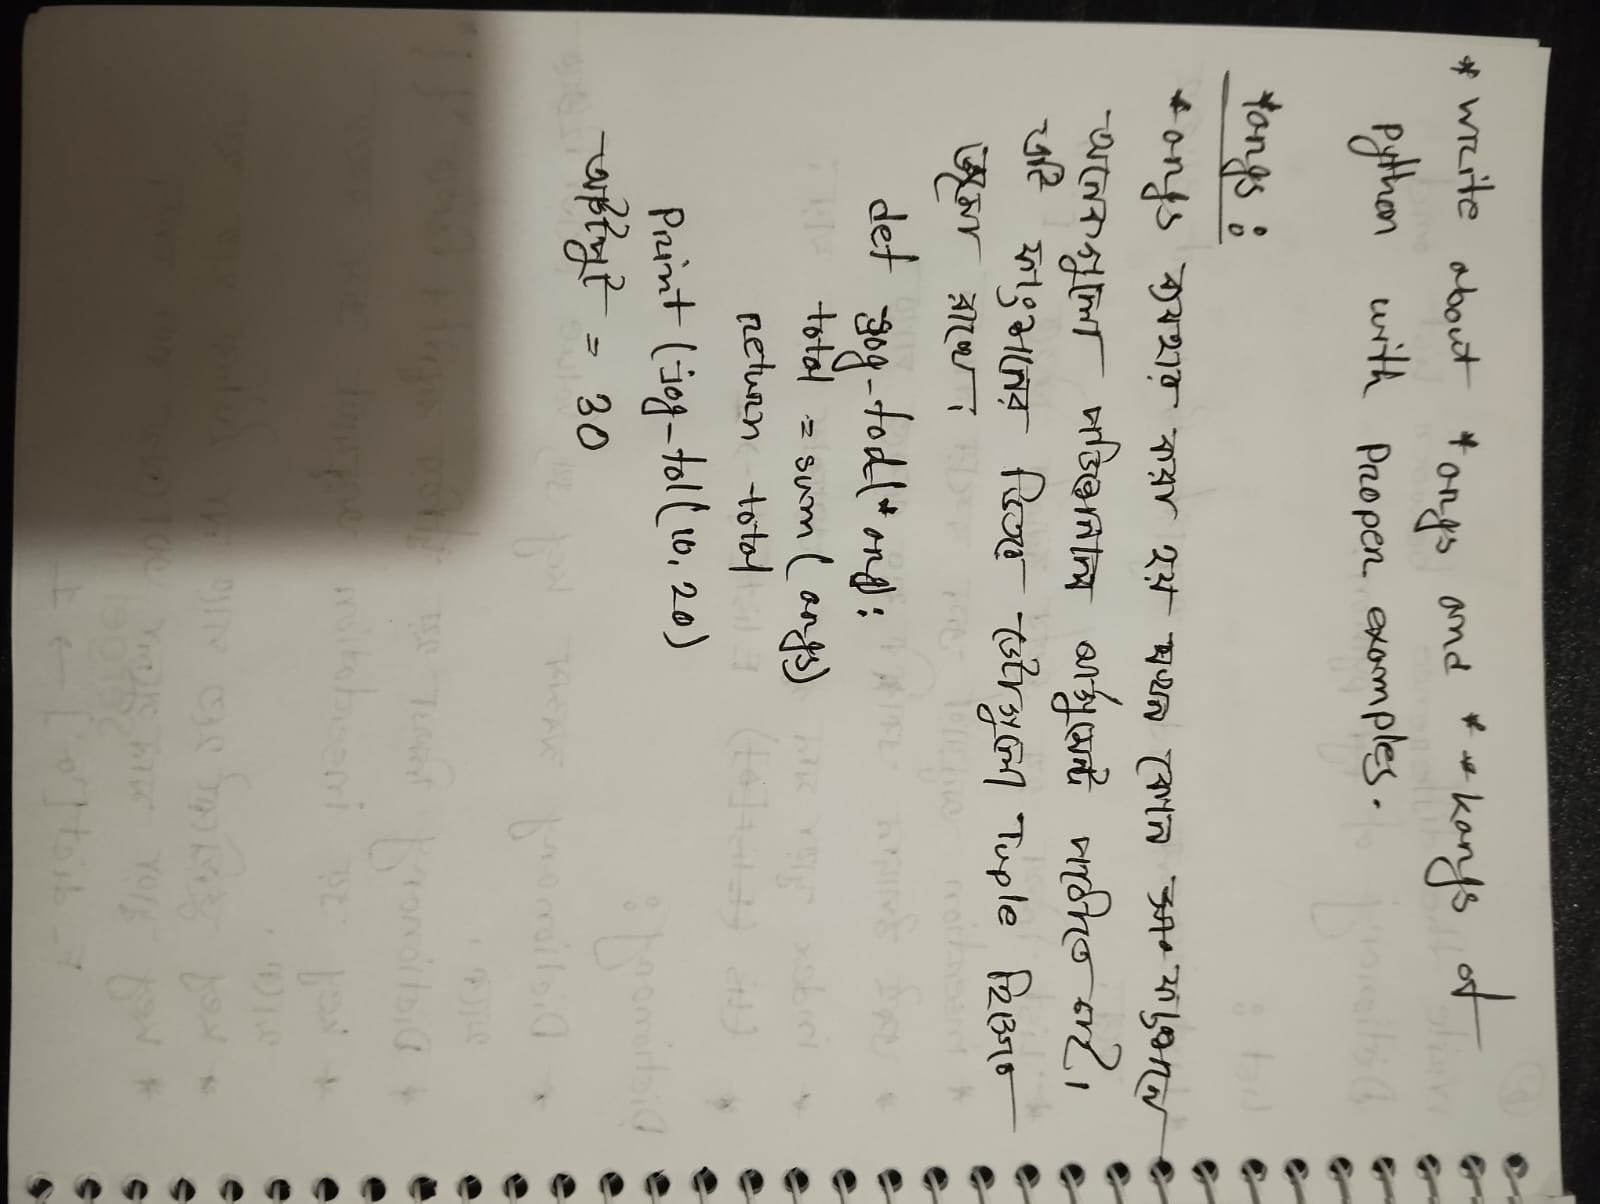 * write about *args and **kargs of
python with propen examples.
*args :
*args ব্যবহার করা হয় যখন কোন আমরা ফাংশনে
অনেকগুলো পজিশনাল আর্গুমেন্ট পাঠাতে চাই।
এটি ফাংশনের ভিতরে ডেটাগুলো Tuple হিসেবে
জমা রাখে।
def jog-fol(*arg):
total = sum(args)
return total
Print(jog-fol(10, 20)
আউটপুট = 30